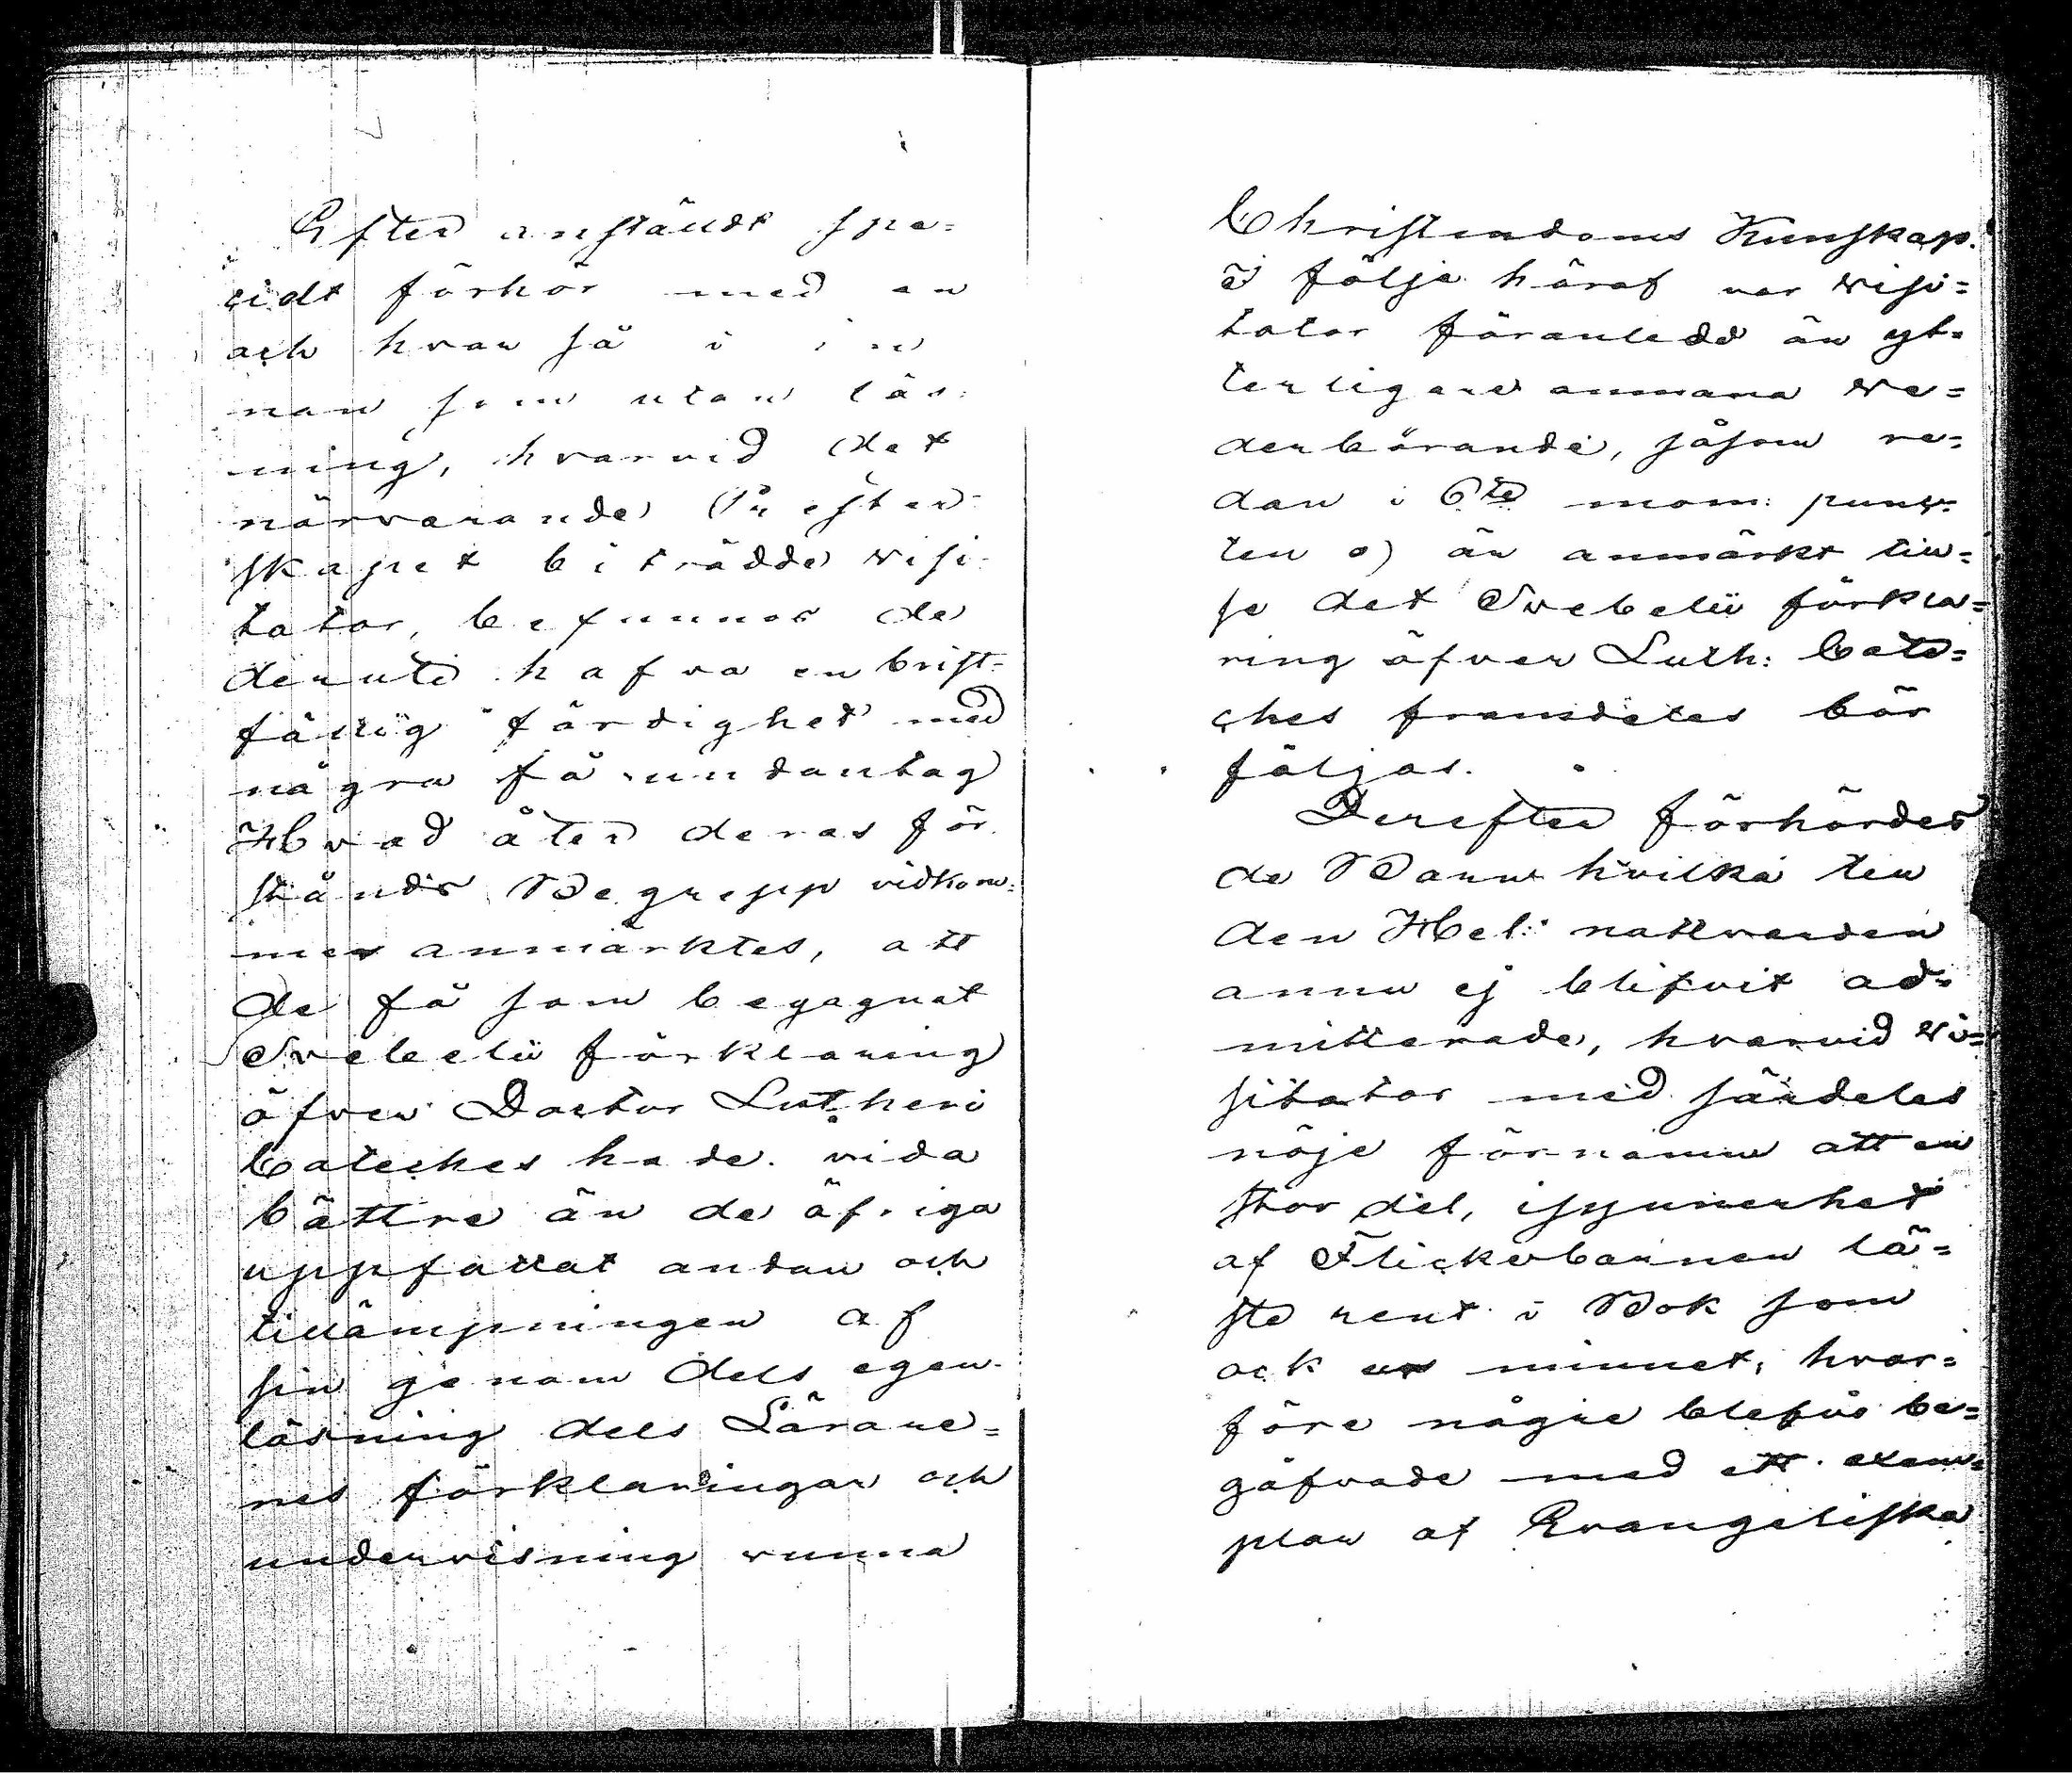 Efter anstäldt spe=
cielt förhör med en
och hvar så i in
nan som utan läs:
ning, hvarvid det
närvarande Prester-
skapet biträdde visi-
tator, befunnos de
deruti hafva en brist-
fällig färdighet med
några få undantag
Hvad åter deras för
stånds Begrepp vidkom=
mer anmärktes, att
de få som begagnat
Svebelii förklaring
öfver Doctor Lutheri
Cateches hade vida
bättre än de öfriga
uppfattat andan och
tillämpningen af
sin genom dels egen
läsning dels Lärare=
nes förklaringar och
undervisning vunna
Christendoms Kunskap.
I följe häraf var visi=
tator föranledd än yt=
terligare anmana ve=
derbörande, såsom re=
dan i 6te mom: punk-
ten o) är anmärkt til=
se det Svebelii förkla=
ring öfver Luth: Cate=
ches framdeles bör
följas.
Derefter förhördes
de Barn hvilka till
den Hel: nattvarden
annu ej blifvit ad=
mitterade, hvarvid vi=
sitator med särdeles
nöje förnamm att en
stor del, isynnerhet
af Flickebarnen lä=
ste rent i Bok som
ock ur minnet, hvar=
före någre blefvo be=
gåfvade med ett exem=
plar af Evangeliska